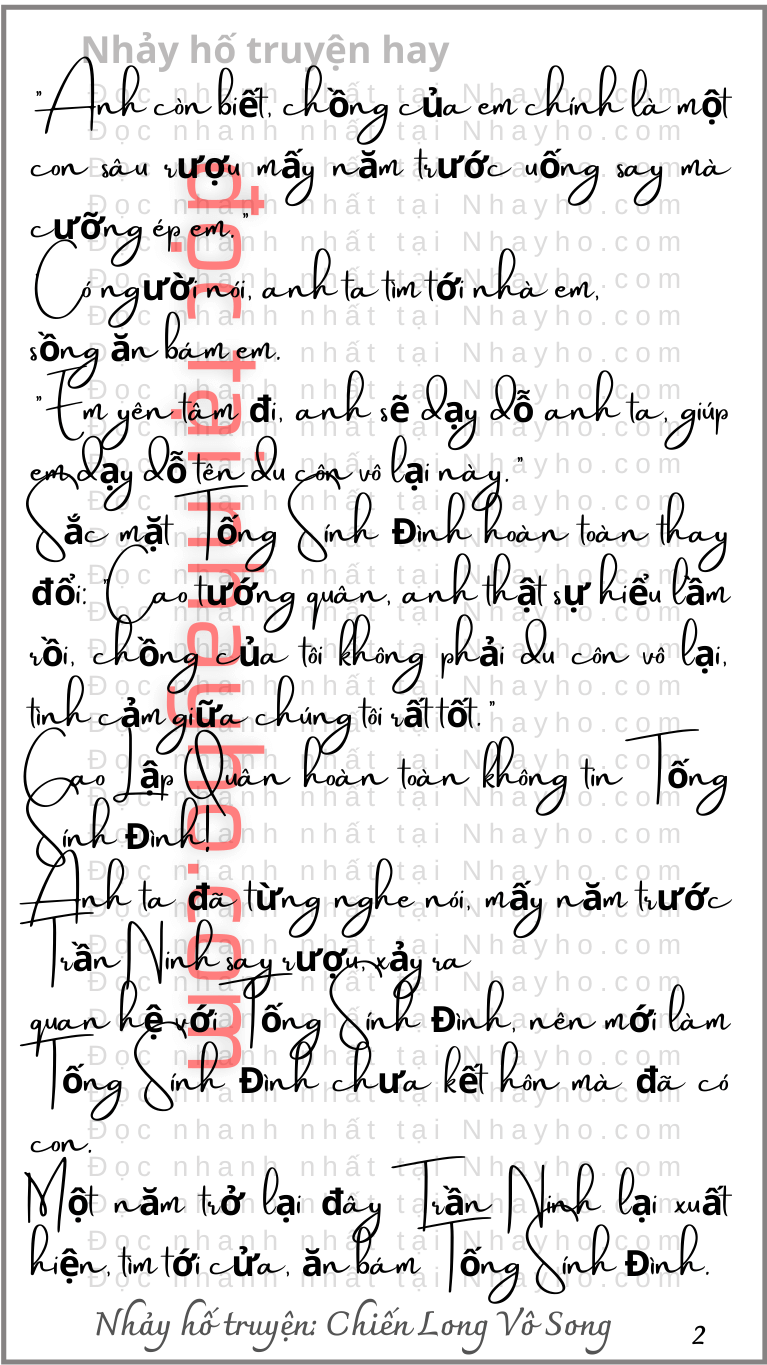 Nhảy hố truyện hay
"Anh còn biết, chồng của em chính là một
con sâu rượu mấy năm trước uống say mà
cưỡng ép em."
Có người nói, anh ta tìm tới nhà em,
sồng ăn bám em.
"Em yên tâm đi, anh sẽ dạy dỗ anh ta, giúp
em dạy dỗ tên du côn vô lại này."
Sắc mặt Tống Sính Đình hoàn toàn thay
đổi: "Cao tướng quân, anh thật sự hiểu lầm
rồi, chồng của tôi không phải du côn vô lại,
tình cảm giữa chúng tôi rất tốt."
Cao Lập Quân hoàn toàn không tin Tống
Sính Đình!
Anh ta đã từng nghe nói, mấy năm trước
Trần Ninh say rượu, xảy ra
quan hệ với Tống Sính Đình, nên mới làm
Tống Sính Đình chưa kết hôn mà đã có
con.
Một năm trở lại đây Trần Ninh lại xuất
hiện, tìm tới cửa, ăn bám Tống Sính Đình.
Nhảy hố truyện: Chiến Long Vô Song
2
đọc tại nhayho.com
Đọc nhanh nhất tại Nhayho.com